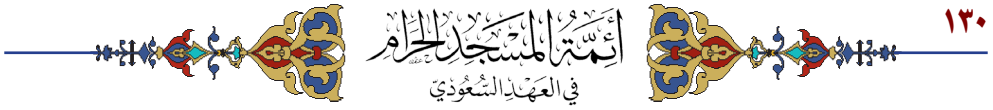 ١٣٠
أَئِمَّةُ المَسْجِدِ الحَرَامِ
فِي العَهْدِ السُّعُودِيِّ